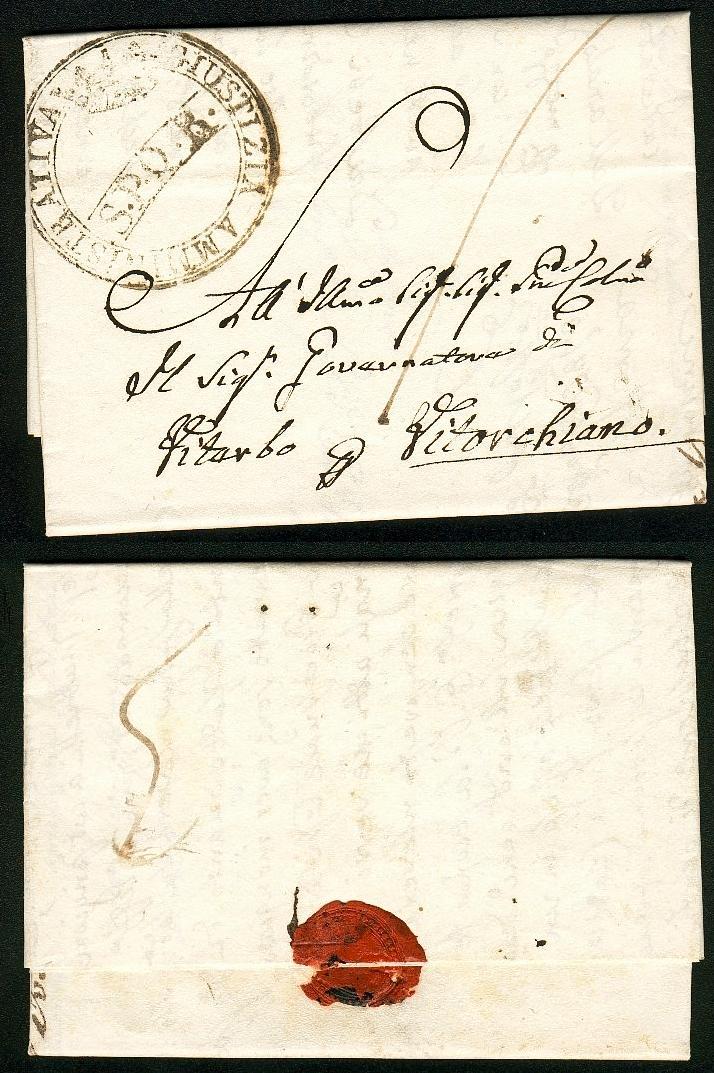 GIUSTIZIA AMMINISTRATIVA
S.P.Q.R.
All' Illmo Sig. Sig. Prne Colmo
Il Sigr. Governatore di
Viterbo p Vitorchiano.